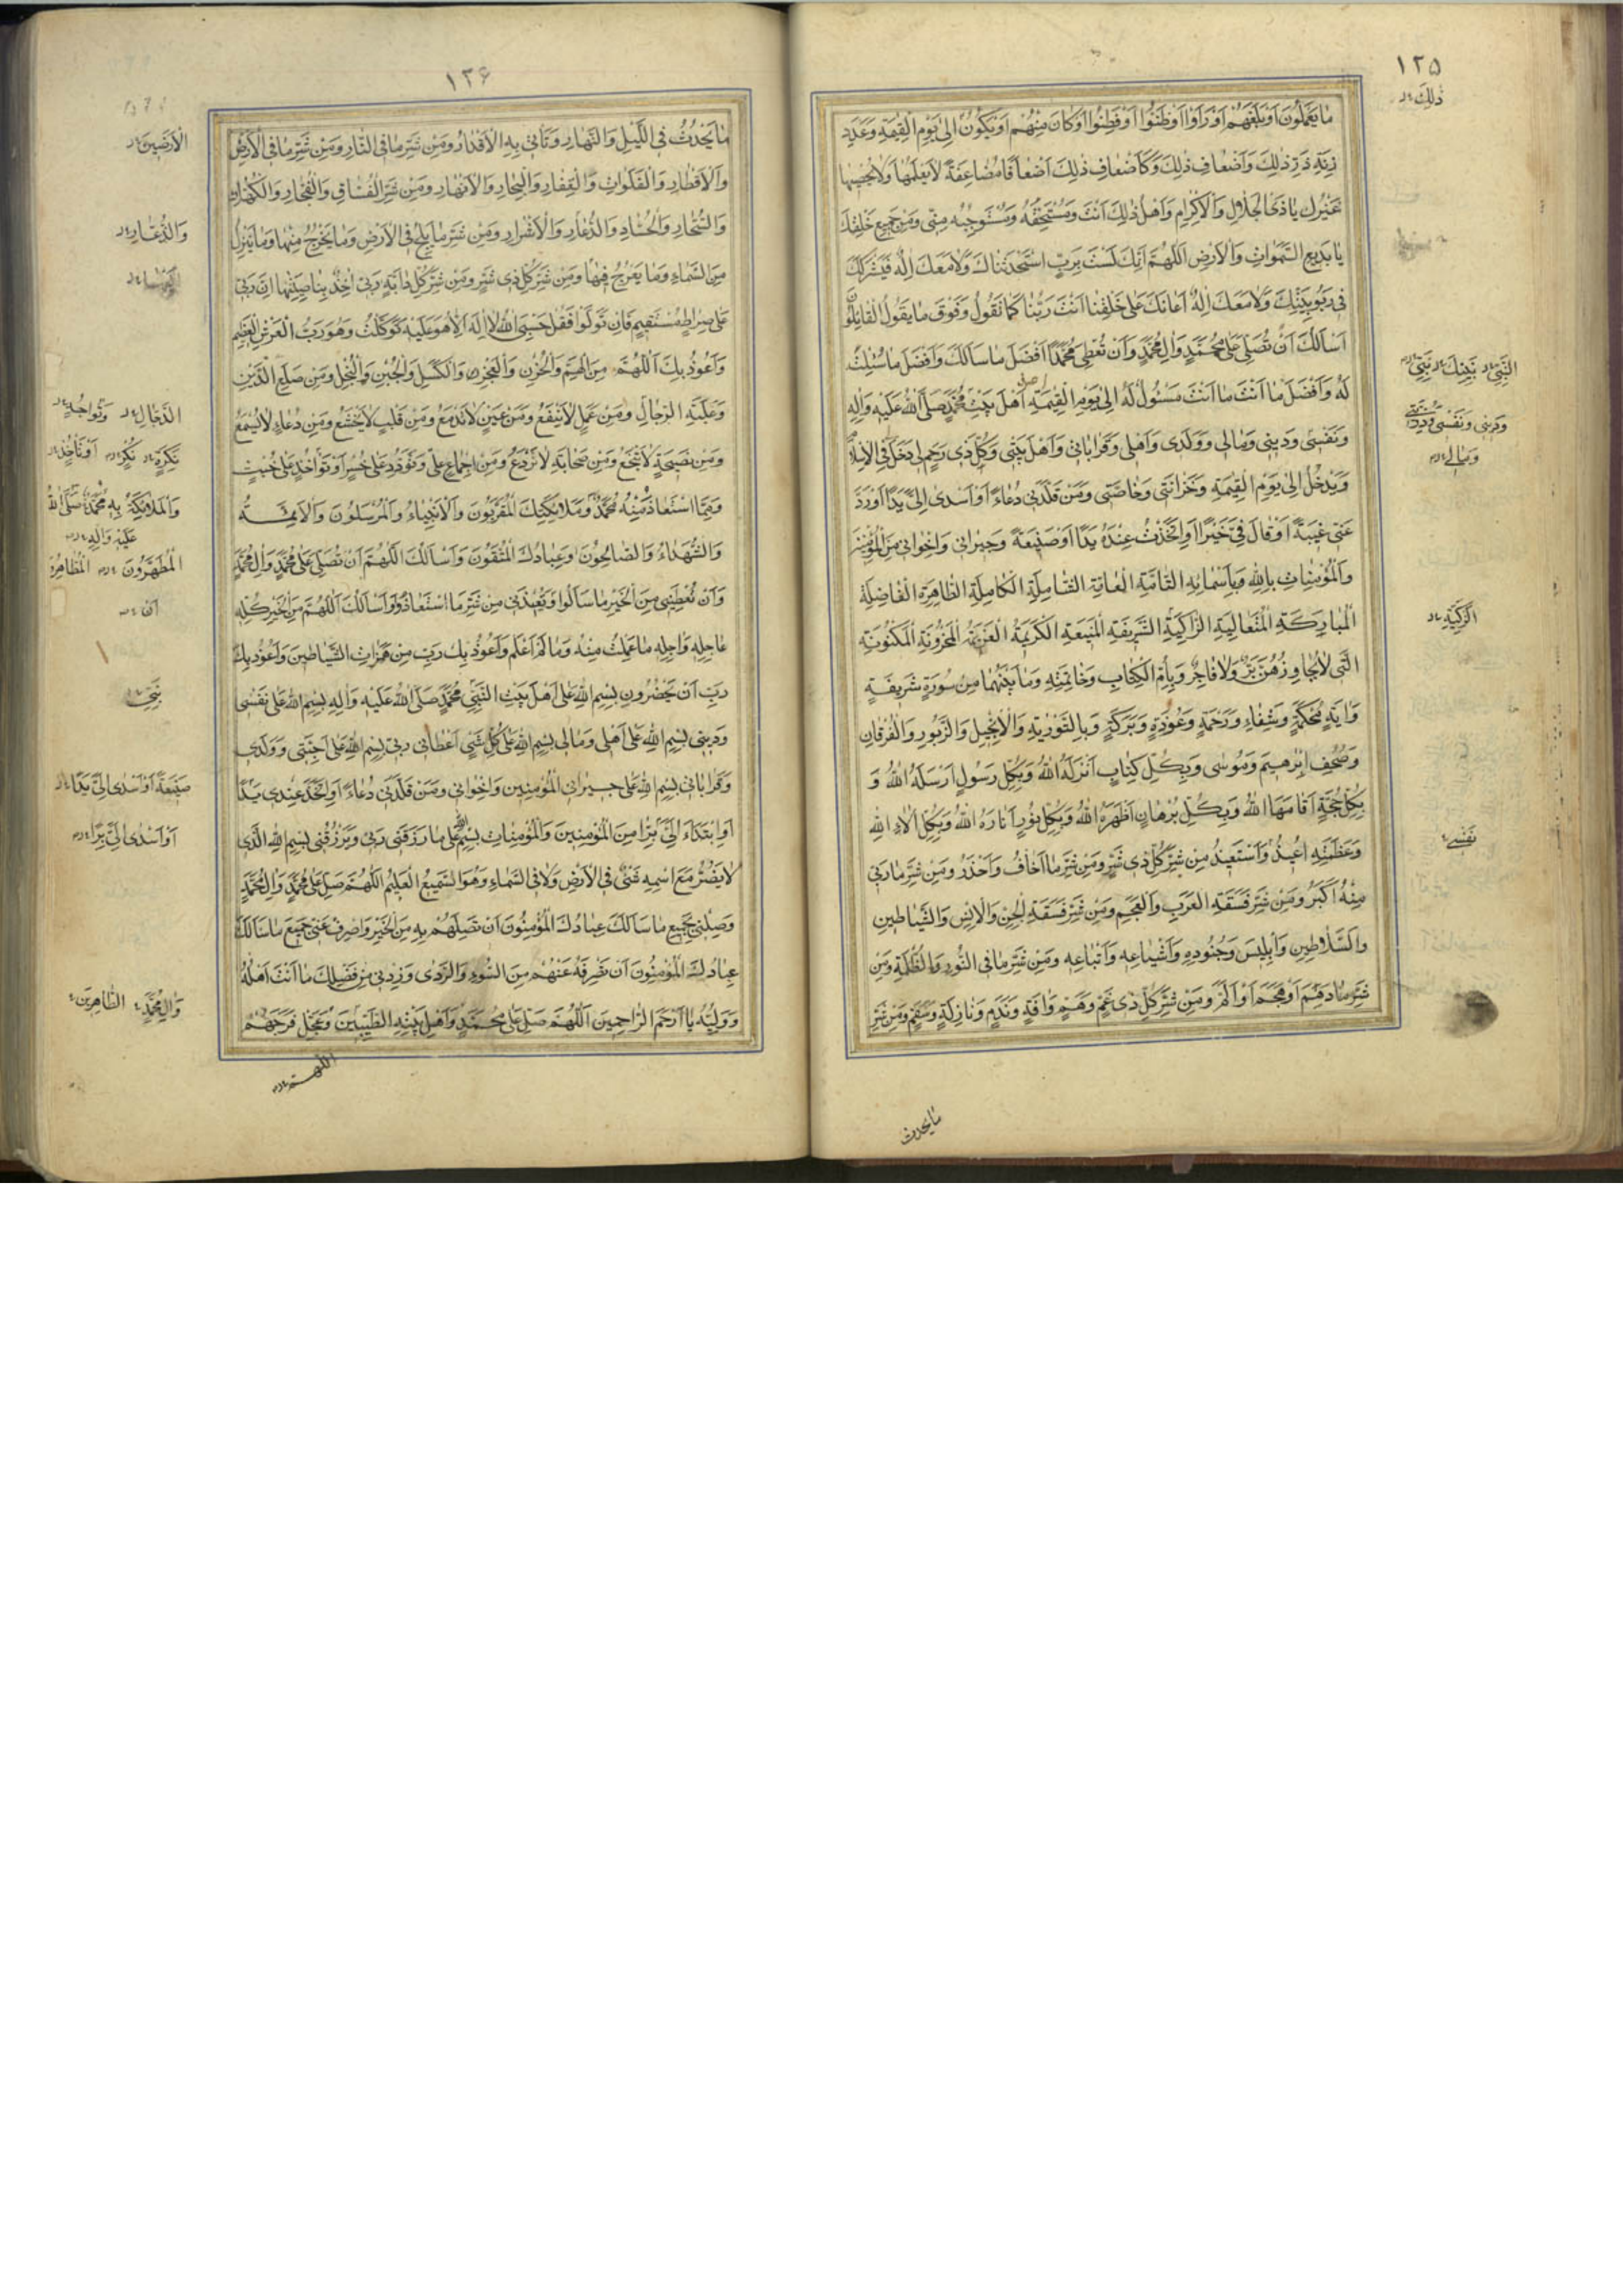 ١٢٥
ذٰلِكَ
مٰا يَعْمَلُونَ اَوْ بَلَغَهُمْ اَوْ رَاَوْا اَوْ ظَنُّوا اَوْ فَطِنُوا اَوْ كٰانَ مِنْهُمْ اَوْ يَكُونُ اِلىٰ يَوْمِ الْقِيٰمَةِ وَعَدَدِ
زِنَةِ ذَرِّ ذٰلِكَ وَاَضْعٰافِ ذٰلِكَ وَكَاَضْعٰافِ ذٰلِكَ اَضْعٰافًا مُضٰاعَفَةً لٰا يَعْلَمُهٰا وَلٰا يُحْصِيهٰا
غَيْرُكَ يٰا ذَا الْجَلٰالِ وَالْاِكْرٰامِ وَاَهْلُ ذٰلِكَ اَنْتَ وَمُسْتَحِقُّهُ وَمُسْتَوْجِبُهُ مِنّى وَمِنْ جَمِيعِ خَلْقِكَ
يٰا بَدِيعَ السَّمٰوٰاتِ وَالْاَرْضِ اَللّٰهُمَّ اِنَّكَ لَسْتَ بِرَبٍّ اسْتَحْدَثْنٰاكَ وَلٰا مَعَكَ اِلٰهٌ فَيَشْرَكَكَ
فى رُبُوبِيَّتِكَ وَلٰا مَعَكَ اِلٰهٌ اَعٰانَكَ عَلىٰ خَلْقِنٰا اَنْتَ رَبُّنٰا كَمٰا نَقُولُ وَفَوْقَ مٰا يَقُولُ الْقٰائِلُونَ
اَسْاَلُكَ اَنْ تُصَلِّىَ عَلىٰ مُحَمَّدٍ وَاٰلِ مُحَمَّدٍ وَاَنْ تُعْطِىَ مُحَمَّدًا اَفْضَلَ مٰا سَاَلَكَ وَاَفْضَلَ مٰا سُئِلْتَ
لَهُ وَاَفْضَلَ مٰا اَنْتَ مَسْئُولٌ لَهُ اِلىٰ يَوْمِ الْقِيٰمَةِ اَهْلَ بَيْتِ مُحَمَّدٍ صَلَّى اللهُ عَلَيْهِ وَاٰلِهِ
وَنَفْسى وَدِينى وَمٰالى وَوَلَدى وَاَهْلى وَقَرٰابٰاتى وَاَهْلَ بَيْتى وَكُلَّ ذى رَحِمٍ لى دَخَلَ فِى الْاِسْلٰامِ
وَيَدْخُلُ اِلىٰ يَوْمِ الْقِيٰمَةِ وَحُزٰانَتى وَخٰاصَّتى وَمَنْ قَلَّدَنى دُعٰاءً اَوْ اَسْدىٰ اِلَىَّ يَدًا اَوْ رَدَّ
عَنّى غِيبَةً اَوْ قٰالَ فِىَّ خَيْرًا اَوِ اتَّخَذْتُ عِنْدَهُ يَدًا اَوْ صَنِيعَةً وَجِيرٰانى وَاِخْوٰانى مِنَ الْمُؤْمِنِينَ
وَالْمُؤْمِنٰاتِ بِاللهِ وَبِاَسْمٰائِهِ التّٰامَّةِ الْعٰامَّةِ الشّٰامِلَةِ الْكٰامِلَةِ الطّٰاهِرَةِ الْفٰاضِلَةِ
الْمُبٰارَكَةِ الْمُتَعٰالِيَةِ الزّٰاكِيَةِ الشَّرِيفَةِ الْمَنِيعَةِ الْكَرِيمَةِ الْعَظِيمَةِ الْمَخْزُونَةِ الْمَكْنُونَةِ
الَّتى لٰا يُجٰاوِزُهُنَّ بَرٌّ وَلٰا فٰاجِرٌ وَبِاُمِّ الْكِتٰابِ وَخٰاتِمَتِهِ وَمٰا بَيْنَهُمٰا مِنْ سُورَةٍ شَرِيفَةٍ
وَاٰيَةٍ مُحْكَمَةٍ وَشِفٰاءٍ وَرَحْمَةٍ وَعُوذَةٍ وَبَرَكَةٍ وَبِالتَّوْرٰيةِ وَالْاِنْجِيلِ وَالزَّبُورِ وَالْفُرْقٰانِ
وَصُحُفِ اِبْرٰهِيمَ وَمُوسىٰ وَبِكُلِّ كِتٰابٍ اَنْزَلَهُ اللهُ وَبِكُلِّ رَسُولٍ اَرْسَلَهُ اللهُ وَ
بِكُلِّ حُجَّةٍ اَقٰامَهَا اللهُ وَبِكُلِّ بُرْهٰانٍ اَظْهَرَهُ اللهُ وَبِكُلِّ نُورٍ اَنٰارَهُ اللهُ وَبِكُلِّ اٰلٰاءِ اللهِ
وَعَظَمَتِهِ اُعِيذُ وَاَسْتَعِيذُ مِنْ شَرِّ كُلِّ ذى شَرٍّ وَمِنْ شَرِّ مٰا اَخٰافُ وَاَحْذَرُ وَمِنْ شَرِّ مٰا رَبّى
مِنْهُ اَكْبَرُ وَمِنْ شَرِّ فَسَقَةِ الْعَرَبِ وَالْعَجَمِ وَمِنْ شَرِّ فَسَقَةِ الْجِنِّ وَالْاِنْسِ وَالشَّيٰاطِينِ
وَالسَّلٰاطِينِ وَاِبْلِيسَ وَجُنُودِهِ وَاَشْيٰاعِهِ وَاَتْبٰاعِهِ وَمِنْ شَرِّ مٰا فِى النُّورِ وَالظُّلْمَةِ وَمِنْ
شَرِّ مٰا دَهَمَ اَوْ هَجَمَ اَوْ اَلَمَّ وَمِنْ شَرِّ كُلِّ ذى غَمٍّ وَهَمٍّ وَاٰفَةٍ وَنَدَمٍ وَنٰازِلَةٍ وَسَقَمٍ وَمِنْ شَرِّ
النَّبِىِّ بَيْتِكَ نَبِيِّ
وَدِينى وَنَفْسى
وَمٰالى
الزَّكِيَّةِ
نَفْسى
مٰا يحدث
١٢٦
مٰا يَحْدُثُ فِى اللَّيْلِ وَالنَّهٰارِ وَتَأْتى بِهِ الْاَقْدٰارُ وَمِنْ شَرِّ مٰا فِى النّٰارِ وَمِنْ شَرِّ مٰا فِى الْاَرْضِ
وَالْاَقْطٰارِ وَالْفَلَوٰاتِ وَالْقِفٰارِ وَالْبِحٰارِ وَالْاَنْهٰارِ وَمِنْ شَرِّ الْفُسّٰاقِ وَالْفُجّٰارِ وَالْكُهّٰانِ
وَالسُّحّٰارِ وَالْحُسّٰادِ وَالذُّعّٰارِ وَالْاَشْرٰارِ وَمِنْ شَرِّ مٰا يَلِجُ فِى الْاَرْضِ وَمٰا يَخْرُجُ مِنْهٰا وَمٰا يَنْزِلُ
مِنَ السَّمٰاءِ وَمٰا يَعْرُجُ فِيهٰا وَمِنْ شَرِّ كُلِّ ذى شَرٍّ وَمِنْ شَرِّ كُلِّ دٰابَّةٍ رَبّى اٰخِذٌ بِنٰاصِيَتِهٰا اِنَّ رَبّى
عَلىٰ صِرٰاطٍ مُسْتَقِيمٍ فَاِنْ تَوَلَّوْا فَقُلْ حَسْبِىَ اللهُ لٰا اِلٰهَ اِلّٰا هُوَ عَلَيْهِ تَوَكَّلْتُ وَهُوَ رَبُّ الْعَرْشِ الْعَظِيمِ
وَاَعُوذُ بِكَ اَللّٰهُمَّ مِنَ الْهَمِّ وَالْحُزْنِ وَالْعَجْزِ وَالْكَسَلِ وَالْجُبْنِ وَالْبُخْلِ وَمِنْ ضَلَعِ الدَّيْنِ
وَغَلَبَةِ الرِّجٰالِ وَمِنْ عَمَلٍ لٰا يَنْفَعُ وَمِنْ عَيْنٍ لٰا تَدْمَعُ وَمِنْ قَلْبٍ لٰا يَخْشَعُ وَمِنْ دُعٰاءٍ لٰا يُسْمَعُ
وَمِنْ نَصِيحَةٍ لٰا تَنْجَعُ وَمِنْ صَحٰابَةٍ لٰا تَرْدَعُ وَمِنِ اجْمٰاعٍ عَلىٰ وَتَوَدُّدٍ عَلىٰ خُسْرٍ اَوْ تَوٰاخُذٍ عَلىٰ خُبْثٍ
وَمِمَّا اسْتَعٰاذَ مِنْهُ مُحَمَّدٌ وَمَلٰائِكَتُكَ الْمُقَرَّبُونَ وَالْاَنْبِيٰاءُ وَالْمُرْسَلُونَ وَالْاَئِمَّةُ
وَالشُّهَدٰاءُ وَالصّٰالِحُونَ وَعِبٰادُكَ الْمُتَّقُونَ وَاَسْاَلُكَ اَللّٰهُمَّ اَنْ تُصَلِّىَ عَلىٰ مُحَمَّدٍ وَاٰلِ مُحَمَّدٍ
وَاَنْ تُعْطِيَنى مِنَ الْخَيْرِ مٰا سَاَلُوا وَتُعِيذَنى مِنْ شَرِّ مَا اسْتَعٰاذُوا وَاَسْاَلُكَ اَللّٰهُمَّ مِنَ الْخَيْرِ كُلِّهِ
عٰاجِلِهِ وَاٰجِلِهِ مٰا عَلِمْتُ مِنْهُ وَمٰا لَمْ اَعْلَمْ وَاَعُوذُ بِكَ رَبِّ مِنْ هَمَزٰاتِ الشَّيٰاطِينِ وَاَعُوذُ بِكَ
رَبِّ اَنْ يَحْضُرُونِ بِسْمِ اللهِ عَلىٰ اَهْلِ بَيْتِ النَّبِىِّ مُحَمَّدٍ صَلَّى اللهُ عَلَيْهِ وَاٰلِهِ بِسْمِ اللهِ عَلىٰ نَفْسى
وَدِينى بِسْمِ اللهِ عَلىٰ اَهْلى وَمٰالى بِسْمِ اللهِ عَلىٰ كُلِّ شَىْءٍ اَعْطٰانى رَبّى بِسْمِ اللهِ عَلىٰ اَحِبَّتى وَوَلَدى
وَقَرٰابٰاتى بِسْمِ اللهِ عَلىٰ جِيرٰانى الْمُؤْمِنِينَ وَاِخْوٰانى وَمَنْ قَلَّدَنى دُعٰاءً اَوِ اتَّخَذَ عِنْدى يَدًا
اَوِ ابْتَدَاَ اِلَىَّ بِرًّا مِنَ الْمُؤْمِنِينَ وَالْمُؤْمِنٰاتِ بِسْمِ اللهِ عَلىٰ مٰا رَزَقَنى رَبّى وَيَرْزُقُنى بِسْمِ اللهِ الَّذى
لٰا يَضُرُّ مَعَ اسْمِهِ شَىْءٌ فِى الْاَرْضِ وَلٰا فِى السَّمٰاءِ وَهُوَ السَّمِيعُ الْعَلِيمُ اَللّٰهُمَّ صَلِّ عَلىٰ مُحَمَّدٍ وَاٰلِ مُحَمَّدٍ
وَصِلْنى بِجَمِيعِ مٰا سَاَلَكَ عِبٰادُكَ الْمُؤْمِنُونَ اَنْ تَصِلَهُمْ بِهِ مِنَ الْخَيْرِ وَاصْرِفْ عَنّى جَمِيعَ مٰا سَاَلَكَ
عِبٰادُكَ الْمُؤْمِنُونَ اَنْ تَصْرِفَهُ عَنْهُمْ مِنَ السُّوءِ وَالرَّدىٰ وَزِدْنى مِنْ فَضْلِكَ مٰا اَنْتَ اَهْلُهُ
وَوَلِيُّهُ يٰا اَرْحَمَ الرّٰاحِمِينَ اَللّٰهُمَّ صَلِّ عَلىٰ مُحَمَّدٍ وَاَهْلِ بَيْتِهِ الطَّيِّبِينَ وَعَجِّلْ فَرَجَهُمْ
الْاَرَضِينَ
وَالذُّعّٰارِ
الدَّجّٰالِ وَتَوٰاجُدٍ
نَكِرَةٍ نُكْرٍ اَوْ تَأَخُّذٍ
وَالْمَلٰائِكَةُ بِهِ مُحَمَّدٌ صَلَّى اللهُ
عَلَيْهِ وَاٰلِهِ
الْمُطَهَّرُونَ
اَنْ
صَنِيعَةً اَوْ اَسْدىٰ اِلَىَّ يَدًا
اَوْ اَسْدىٰ اِلَىَّ بِرًّا
وَاٰلِ مُحَمَّدٍ الطّٰاهِرِينَ
اللّهمّ